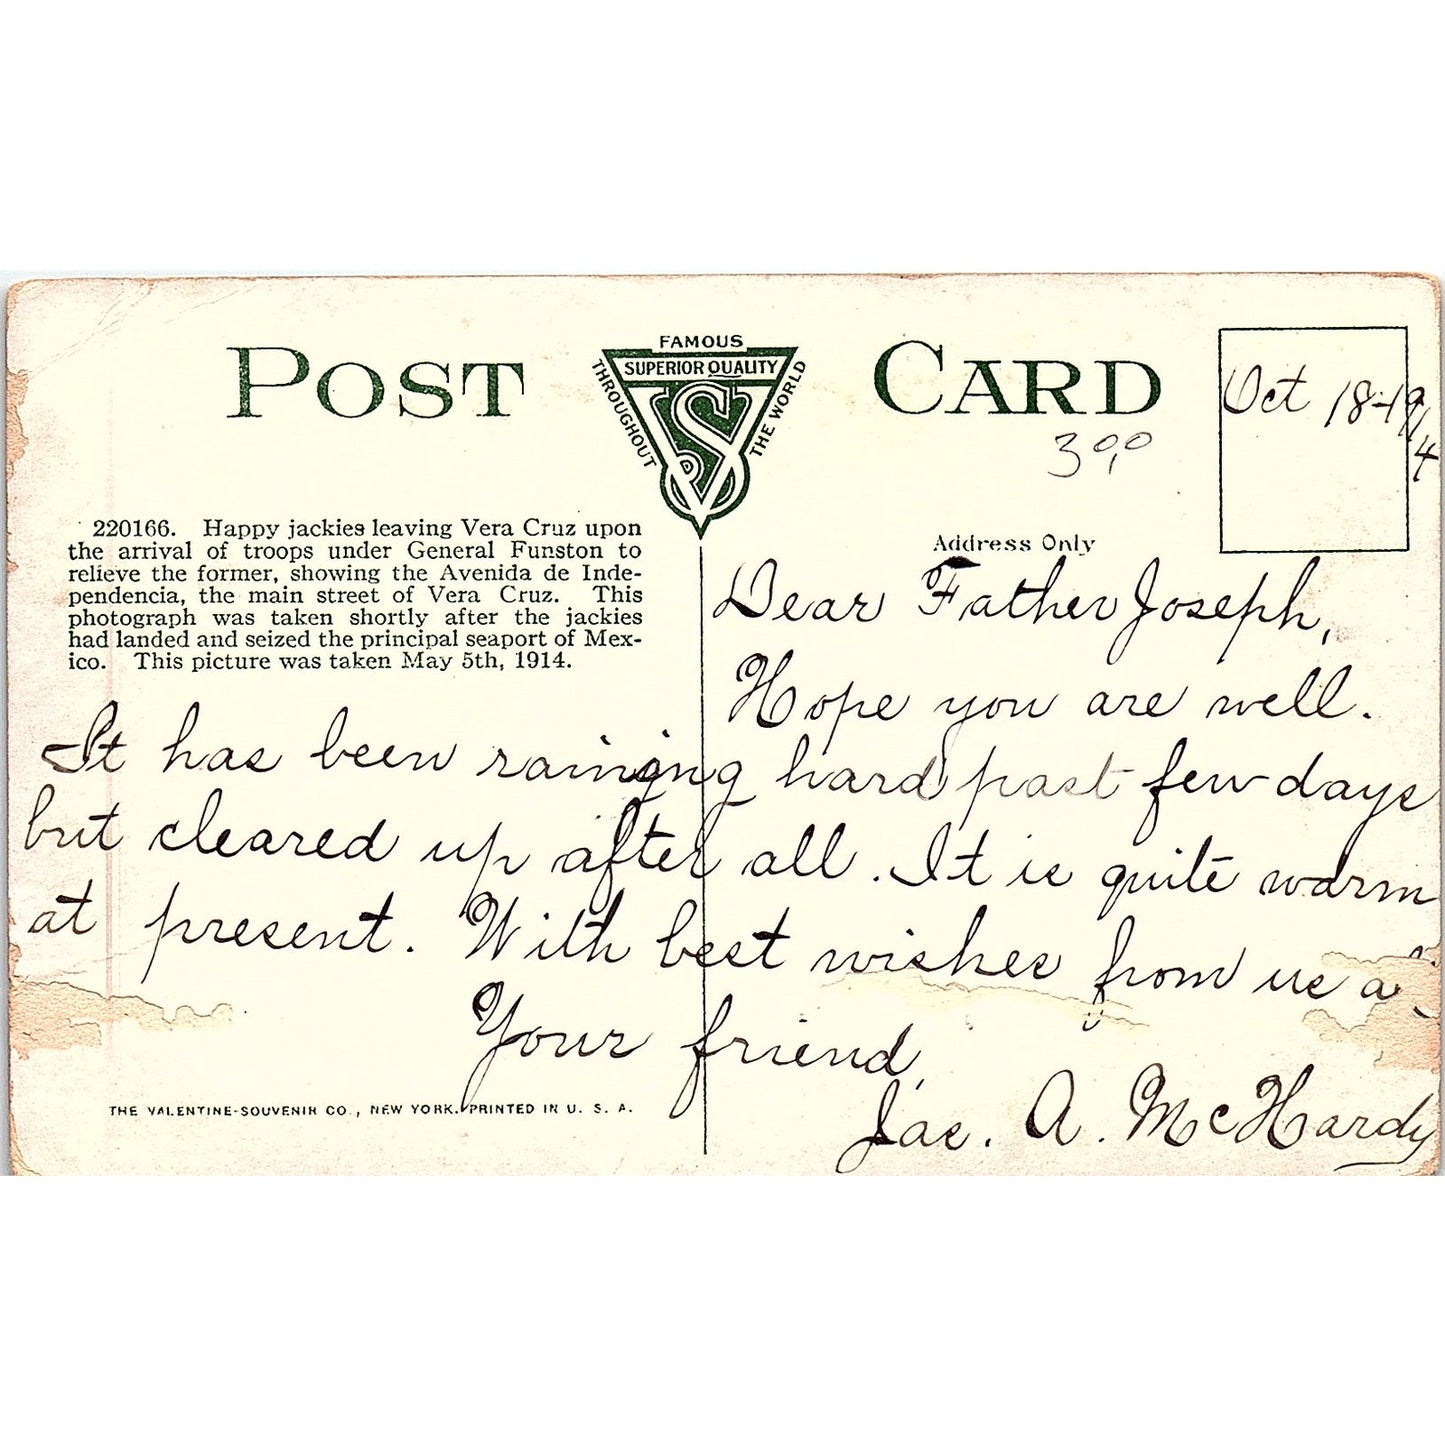 POST CARD
FAMOUS
SUPERIOR QUALITY
THROUGHOUT
THE WORLD
VS
Oct 18-1914
3 00
220166. Happy jackies leaving Vera Cruz upon
the arrival of troops under General Funston to
relieve the former, showing the Avenida de Inde-
pendencia, the main street of Vera Cruz. This
photograph was taken shortly after the jackies
had landed and seized the principal seaport of Mex-
ico. This picture was taken May 5th, 1914.
Address Only
Dear Father Joseph,
Hope you are well.
It has been raining hard past few days
but cleared up after all. It is quite warm
at present. With best wishes from us
Your friend,
Jas. A. McHardy
THE VALENTINE-SOUVENIR CO., NEW YORK. PRINTED IN U. S. A.